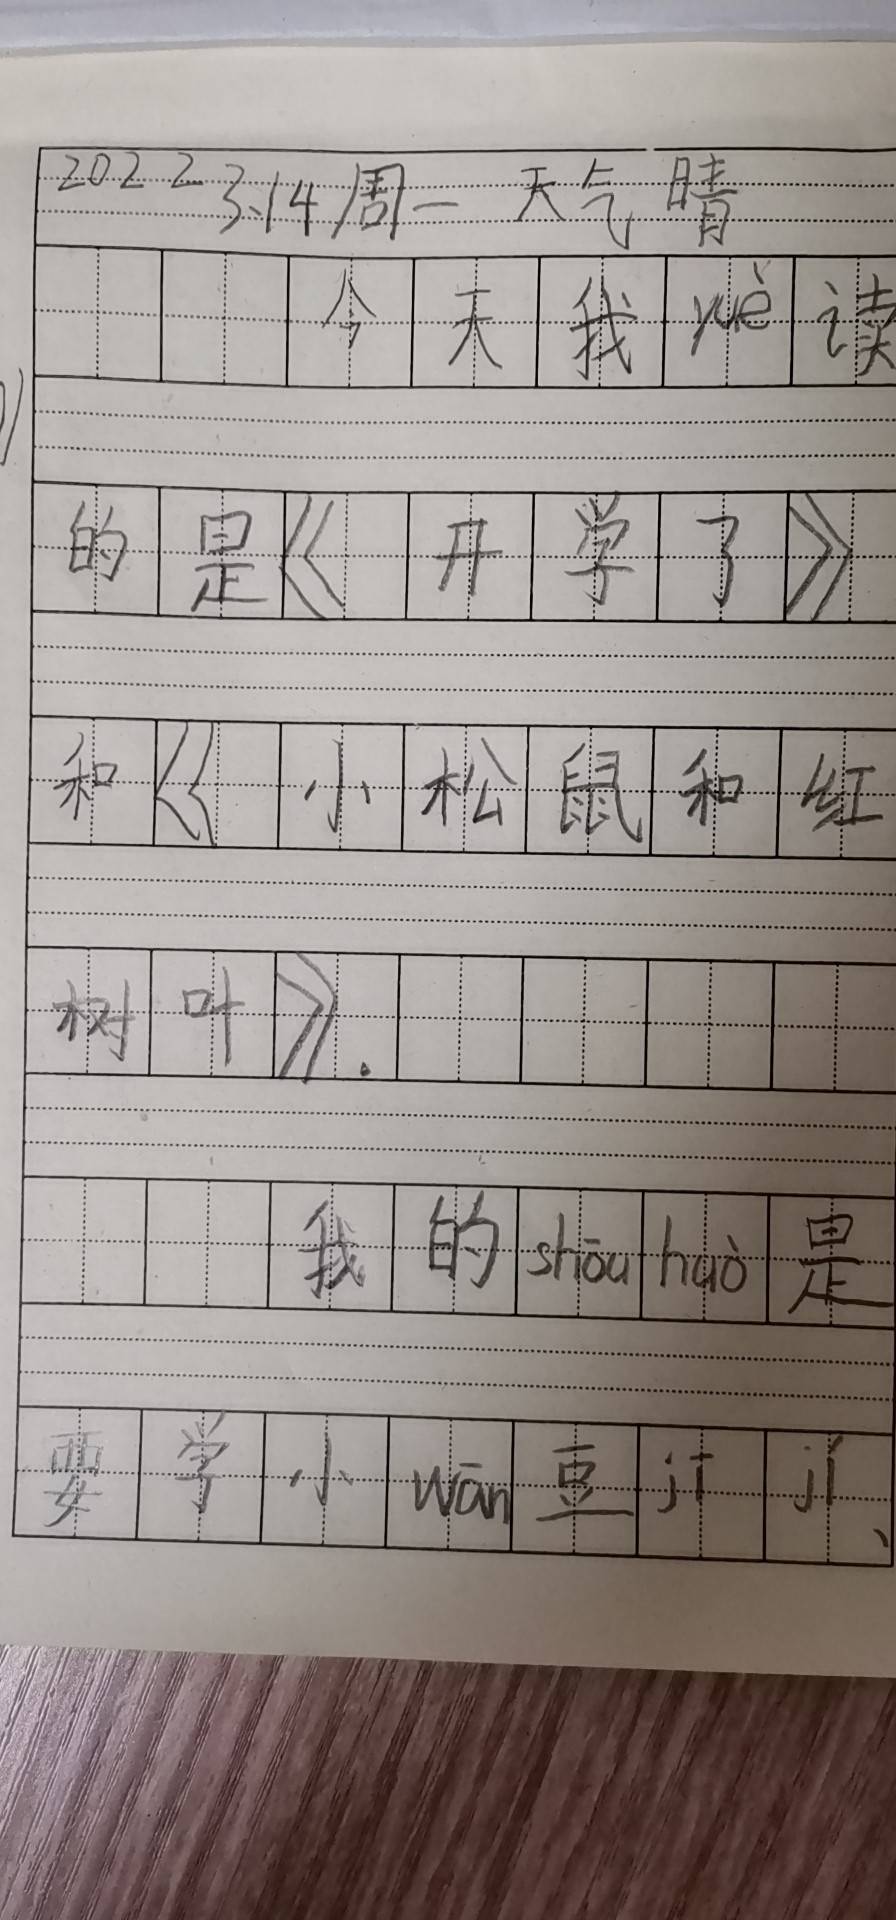 2022 3.14周一 天气晴
今天我yuè读
的是《开学了》
和《小松鼠和红
树叶》.
我的shōu huò是
要学小wān豆jī jí、